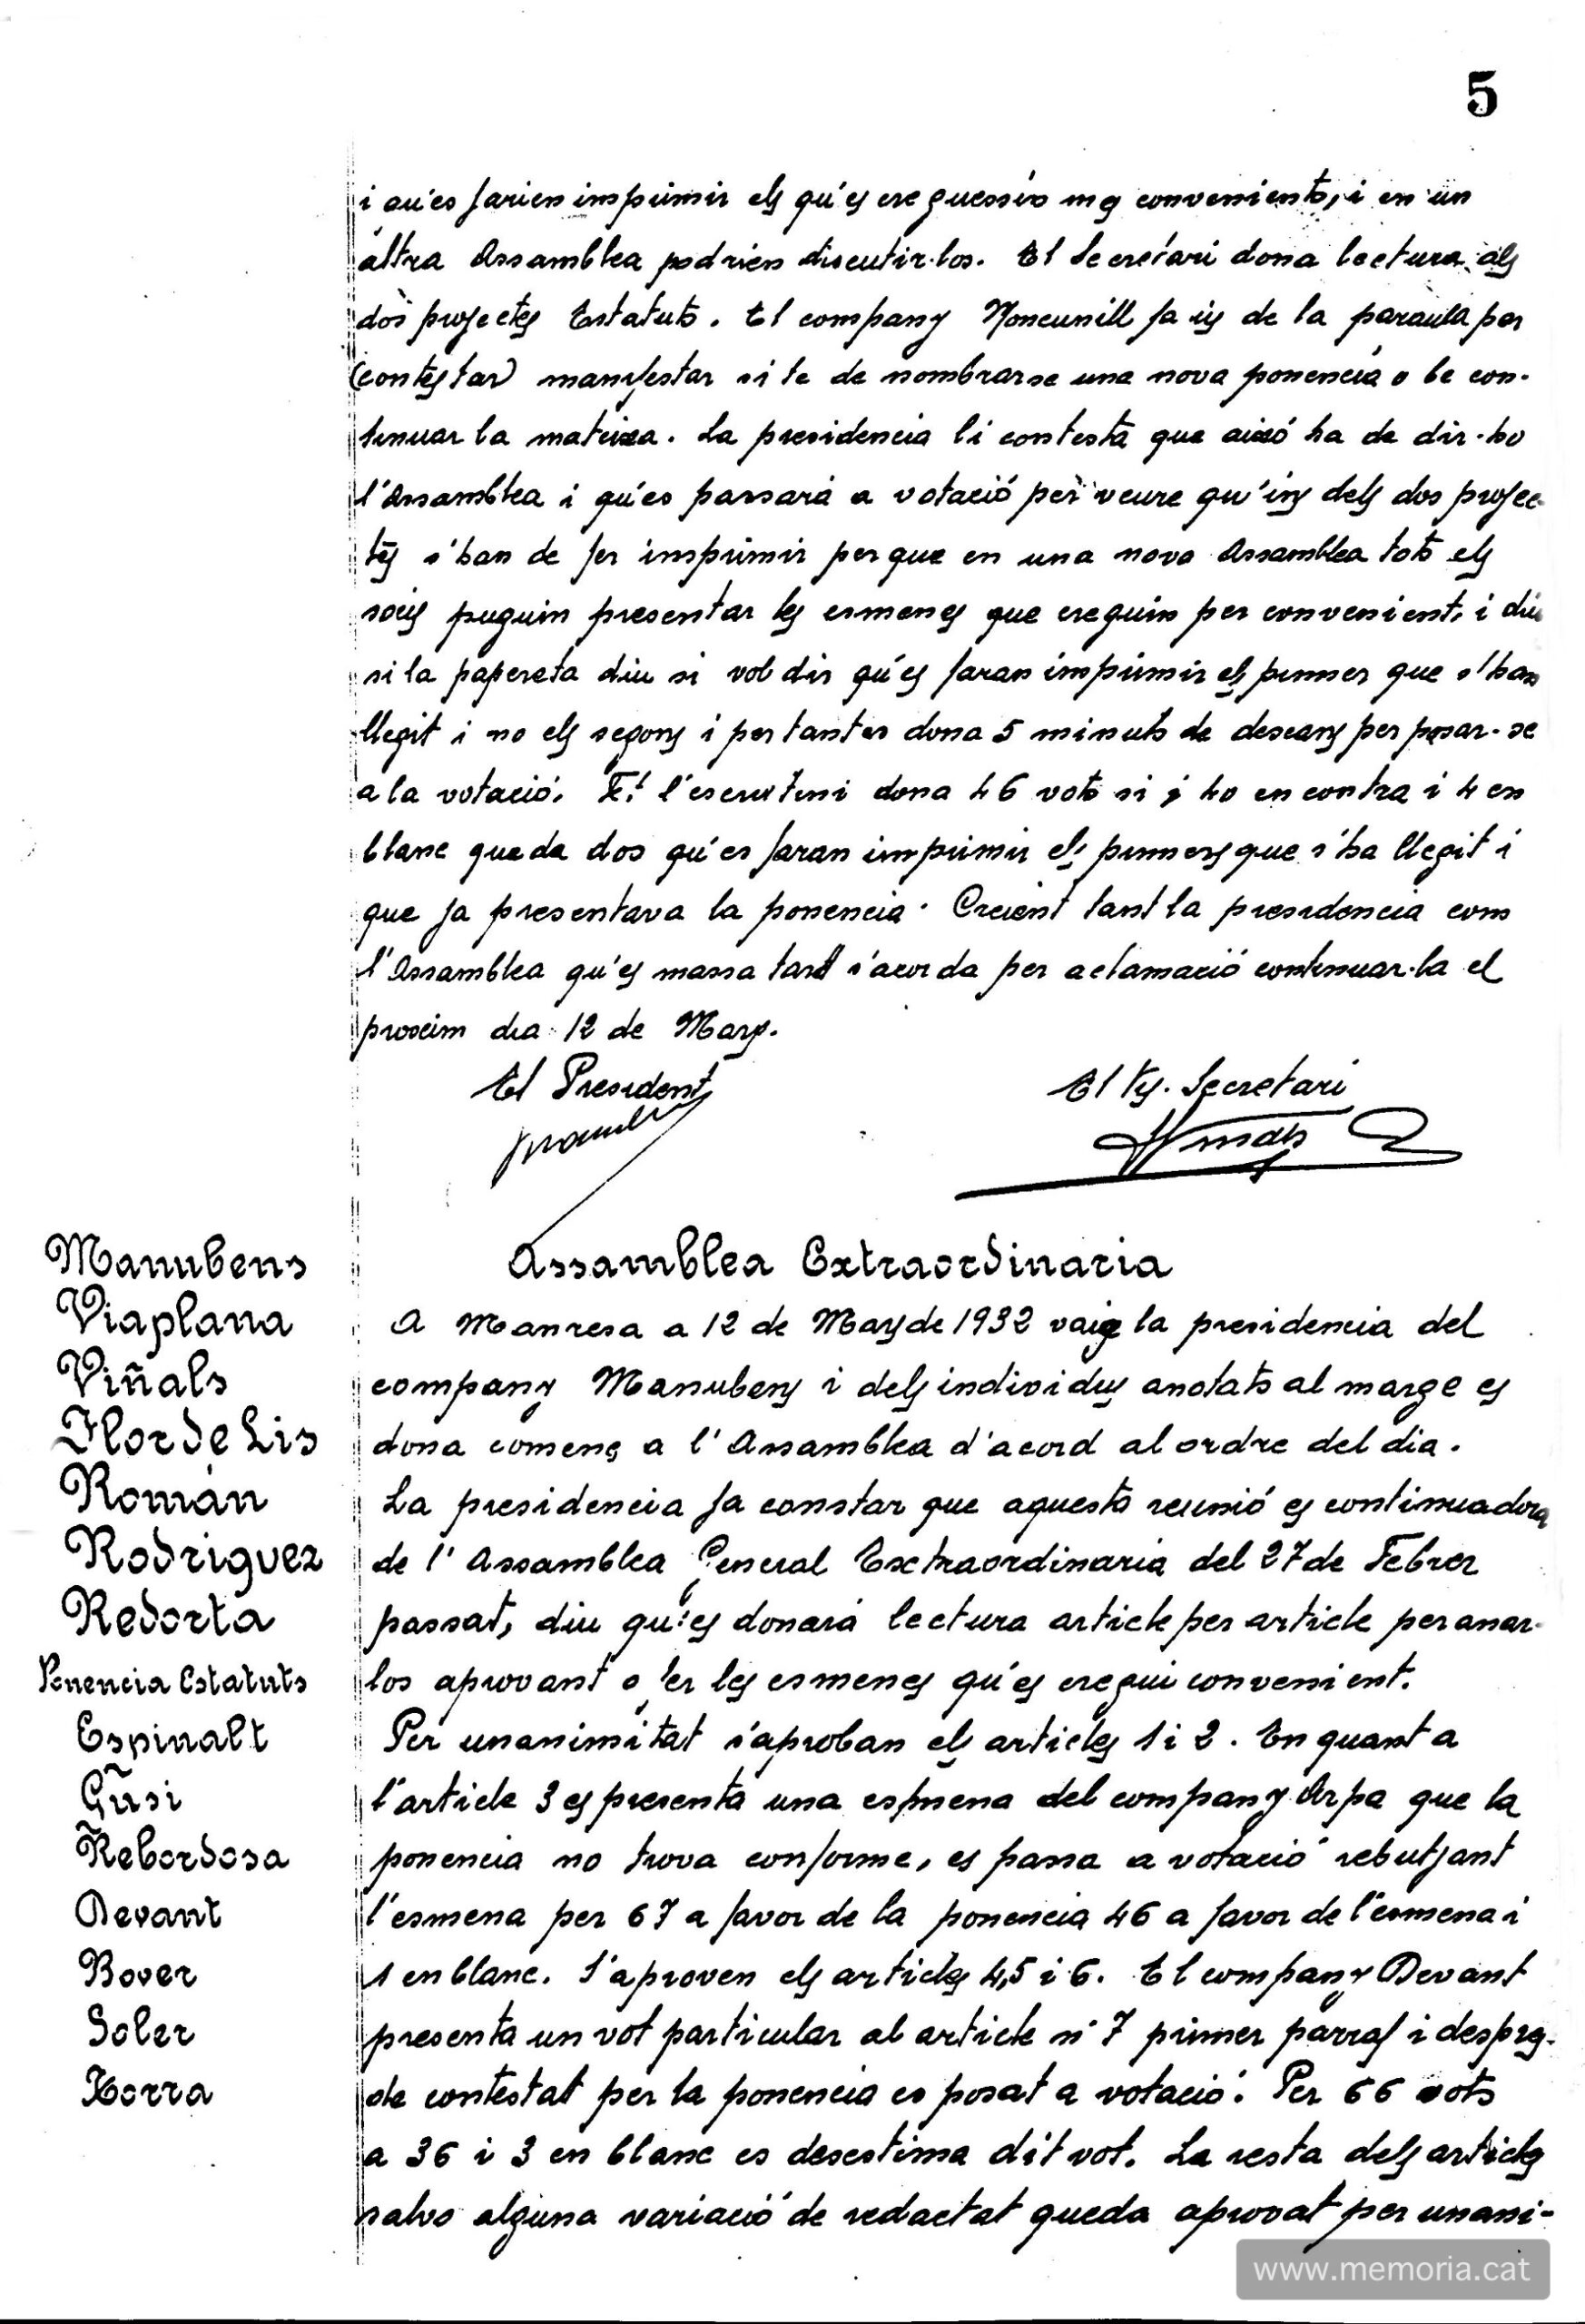 5
i qu'es farien imprimir els qu'es creguessin mes convenients, i en un
altra Assamblea podrien discutir-los. El Secretari dona lectura als
dos projectes Estatuts. El company Moncunill fa us de la paraula per
(contestar) manifestar si te de nombrarse una nova ponencia o be con-
tinuar la mateixa. La presidencia li contesta que aixó ha de dir-ho
l'Assamblea i qu'es passará a votació per veure qu'ins dels dos projec-
tes s'han de fer imprimir per que en una nova Assamblea tots els
socis puguin presentar les esmenes que creguin per convenient, i diu
si la papereta diu si vol dir qu'es faran imprimir els primer que s'han
llegit i no els segons i per tant es dona 5 minuts de descans per posar-se
a la votació. Fet l'escrutini dona 46 vots si i 40 en contra i 4 en
blanc queda dos qu'es faran imprimir els primers que s'ha llegit i
que ja presentava la ponencia. Creient tant la presidencia com
l'Assamblea qu'es massa tard s'acorda per aclamació continuar-la el
proxim dia 12 de Març.
El President
El Vs. Secretari
Manubens
Viaplana
Viñals
Flor de Lis
Román
Rodriguez
Redorta
Ponencia Estatuts
Espinalt
Gusi
Rebordosa
Devant
Bover
Soler
Xorra
Assamblea Extraordinaria
A Manresa a 12 de Març de 1932 vaig la presidencia del
company Manubens i dels individus anotats al marge es
dona començ a l'Assamblea d'acord al ordre del dia.
La presidencia fa constar que aquesta reunió es continuadora
de l'Assamblea General Extraordinaria del 27 de Febrer
passat, diu qu'es donará lectura article per article per anar-
los aprovant o fer les esmenes qu'es cregui convenient.
Per unanimitat s'aproban els articles 1 i 2. En quant a
l'article 3 es presenta una esmena del company Arpa que la
ponencia no trova conforme, es passa a votació rebutjant
l'esmena per 67 a favor de la ponencia 46 a favor de l'esmena i
1 en blanc. S'aproven els articles 4,5 i 6. El company Devant
presenta un vot particular al article nº 7 primer parraf i despres-
de contestat per la ponencia es posat a votació. Per 66 vots
a 36 i 3 en blanc es desestima dit vot. La resta dels articles
salvo alguna variació de redactat queda aprovat per unani-
www.memoria.cat